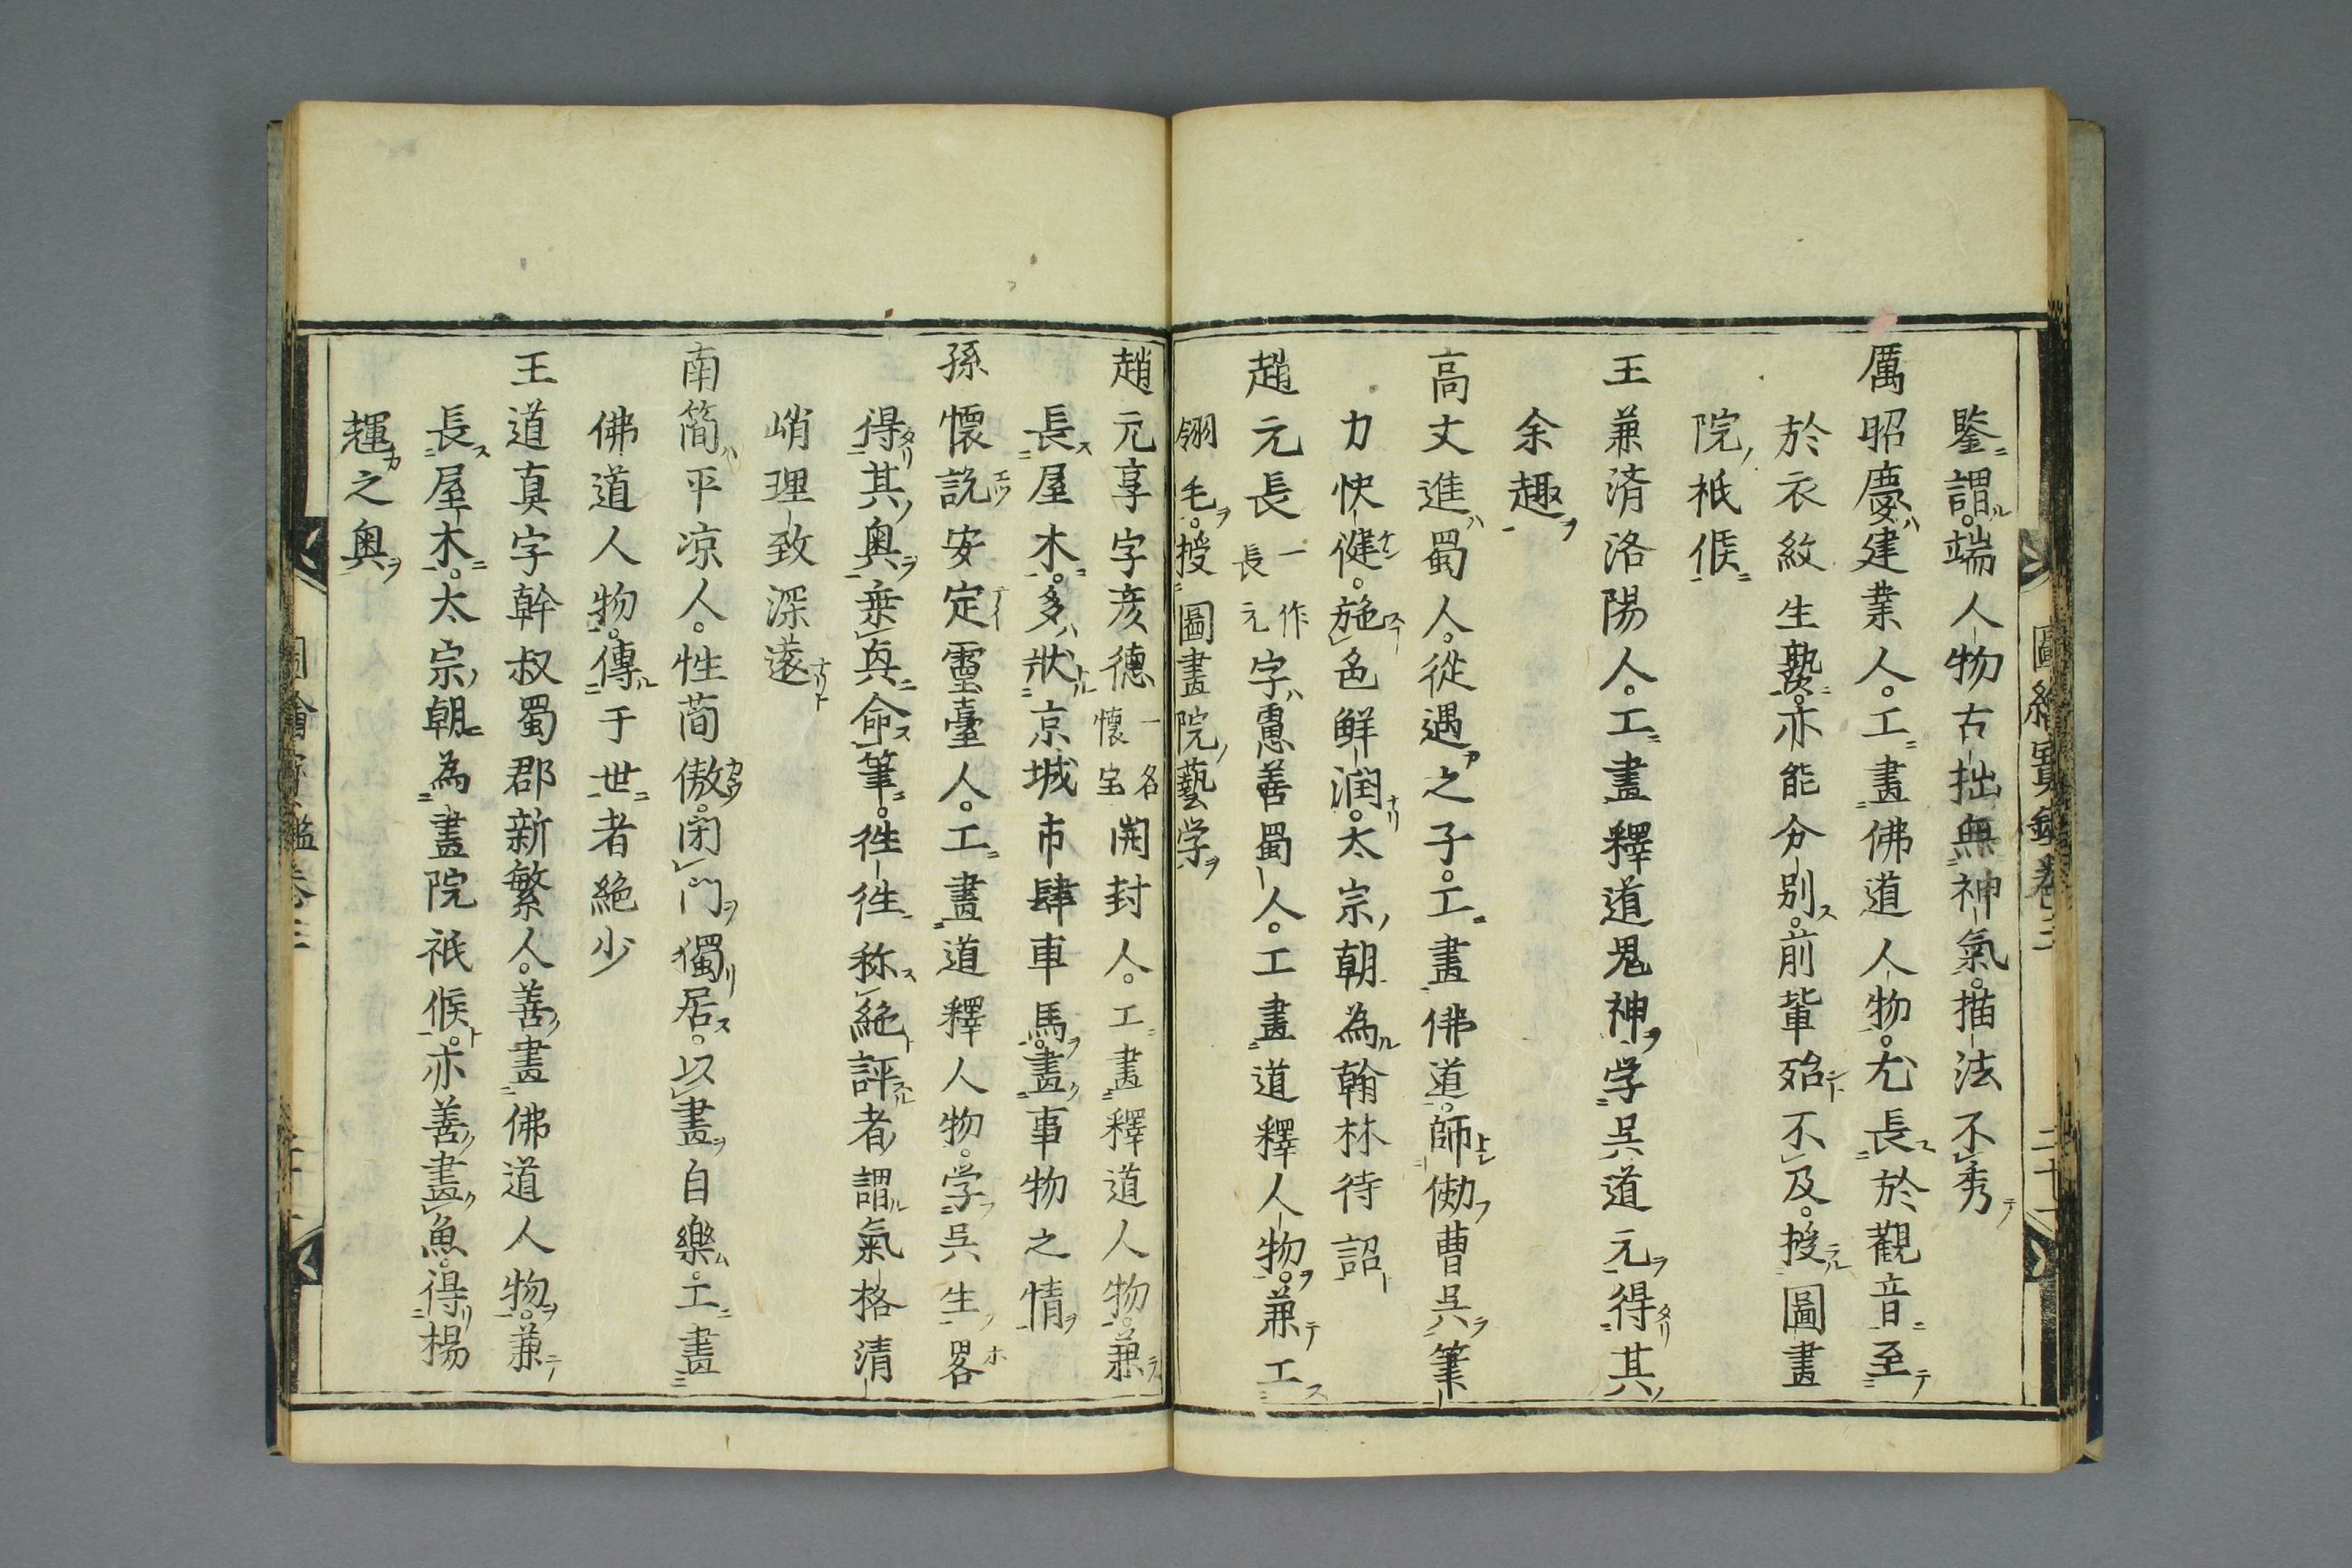 鑒謂端人物古拙無神氣描法不秀
厲昭慶建業人工畫佛道人物尤長於觀音至
於衣紋生熟亦能分別前輩殆不及授圖畫
院祇候
王兼済洛陽人工畫釋道鬼神学呉道元得其
余趣
高文進蜀人從遇之子工畫佛道師倣曹呉筆
力快健施色鮮潤太宗朝為翰林待詔
趙元長一作長元字慮善蜀人工畫道釋人物兼工
翎毛授圖畫院藝学
趙元享字彦德一名懷宝開封人工畫釋道人物兼
長屋木多狀京城市肆車馬畫事物之情
孫懷説安定霊臺人工畫道釋人物学呉生畧
得其奥乗真命筆徃徃称絕評者謂氣格清
峭理致深遠
南簡平凉人性蕳傲閉門獨居以畫自樂工畫
佛道人物傳于世者絕少
王道真字幹叔蜀郡新繁人善畫佛道人物兼
長屋木太宗朝為畫院祇候亦善畫魚得楊
輝之奥
圖繪寳鑑卷三